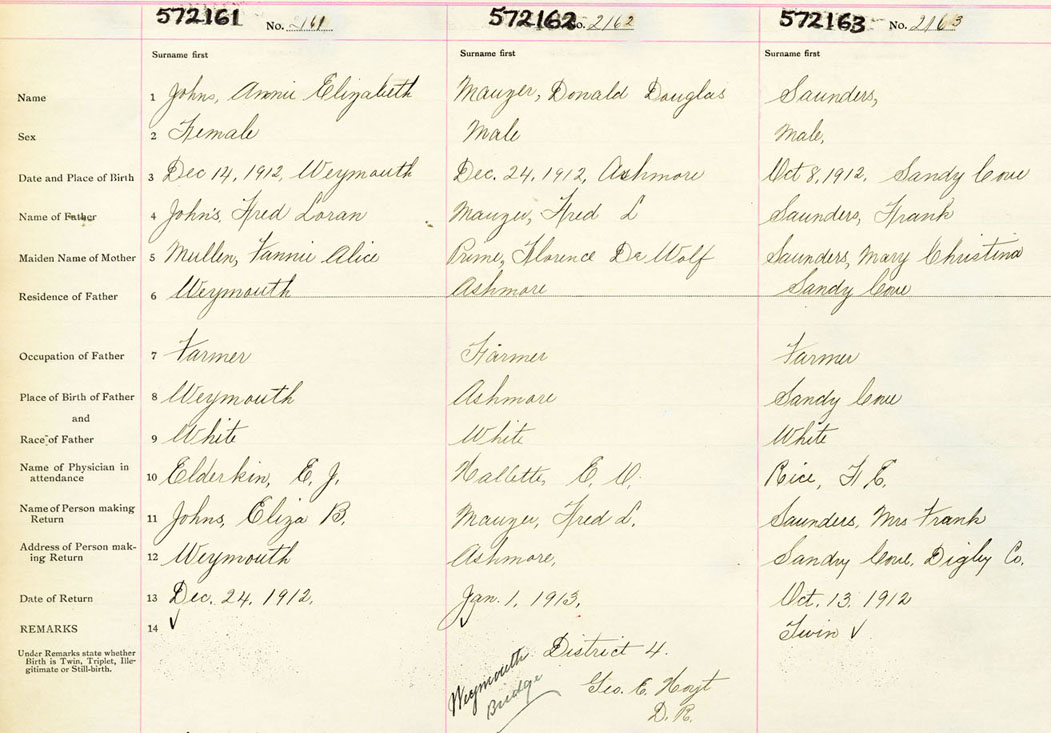 572161 No. 2161 572162 No. 2162 572163 No. 2163
Surname first Surname first Surname first
Name 1 Johns, Annie Elizabeth Mauzer, Donald Douglas Saunders,
Sex 2 Female Male Male,
Date and Place of Birth 3 Dec 14, 1912, Weymouth Dec. 24, 1912, Ashmore Oct 8, 1912, Sandy Cove
Name of Father 4 John's, Fred Loran Mauzer, Fred L Saunders, Frank
Maiden Name of Mother 5 Mullen, Fannie Alice Prime, Florence De Wolf Saunders, Mary Christina
Residence of Father 6 Weymouth Ashmore Sandy Cove
Occupation of Father 7 Farmer Farmer Farmer
Place of Birth of Father 8 Weymouth Ashmore Sandy Cove
and
Race of Father 9 White White White
Name of Physician in
attendance 10 Elderkin, E. J. Hallette, E. O. Rice, F E.
Name of Person making
Return 11 Johns, Eliza B. Mauzer, Fred L. Saunders, Mrs Frank
Address of Person mak-
ing Return 12 Weymouth Ashmore, Sandy Cove, Digby Co.
Date of Return 13 Dec. 24, 1912, Jan. 1, 1913, Oct. 13, 1912
REMARKS 14 ✓ ✓ Twin ✓
Under Remarks state whether
Birth is Twin, Triplet, Ille-
gitimate or Still-birth.
District 4.
Weymouth
Bridge
Geo. E. Hoyt
D. R.